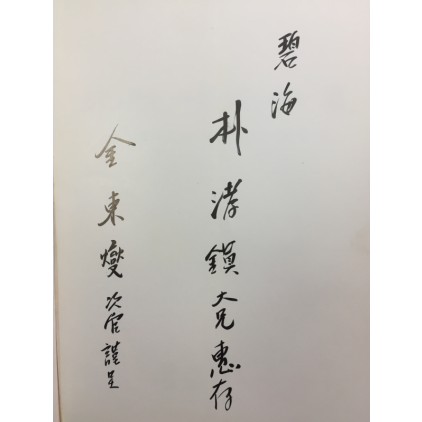 碧海
朴濬鎭大兄惠存
金東燮次官謹呈